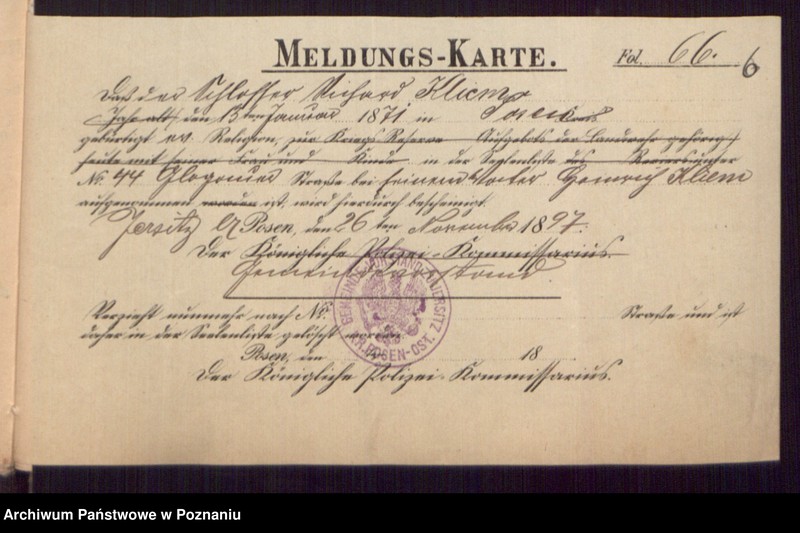 MELDUNGS-KARTE.
Fol. 66. 6
Daß der Schlosser Richard Kliem
(Jahr alt) den 13ten Januar 1871 in Posen
gebürtigt ev. Religion, zur Kriegs Reserve Aufgebots der Landwehr gehörig)
heute mit seiner Frau und Kinder in der Seelenliste des Reviers unter
No. 44 Glogauer Straße bei seinem Vater Heinrich Kliem
aufgenommen worden ist, wird hierdurch bescheinigt.
Jersitz b/ Posen, den 26 ten November 1897.
Der Königliche Polizei-Kommissarius.
Gemeindevorstand
GEMEINDE JERSITZ KR. POSEN-OST.
Verzieht nunmehr nach No. Straße und ist
daher in der Seelenliste gelöscht worden.
Posen, den 18
Der Königliche Polizei-Kommissarius.
Archiwum Państwowe w Poznaniu